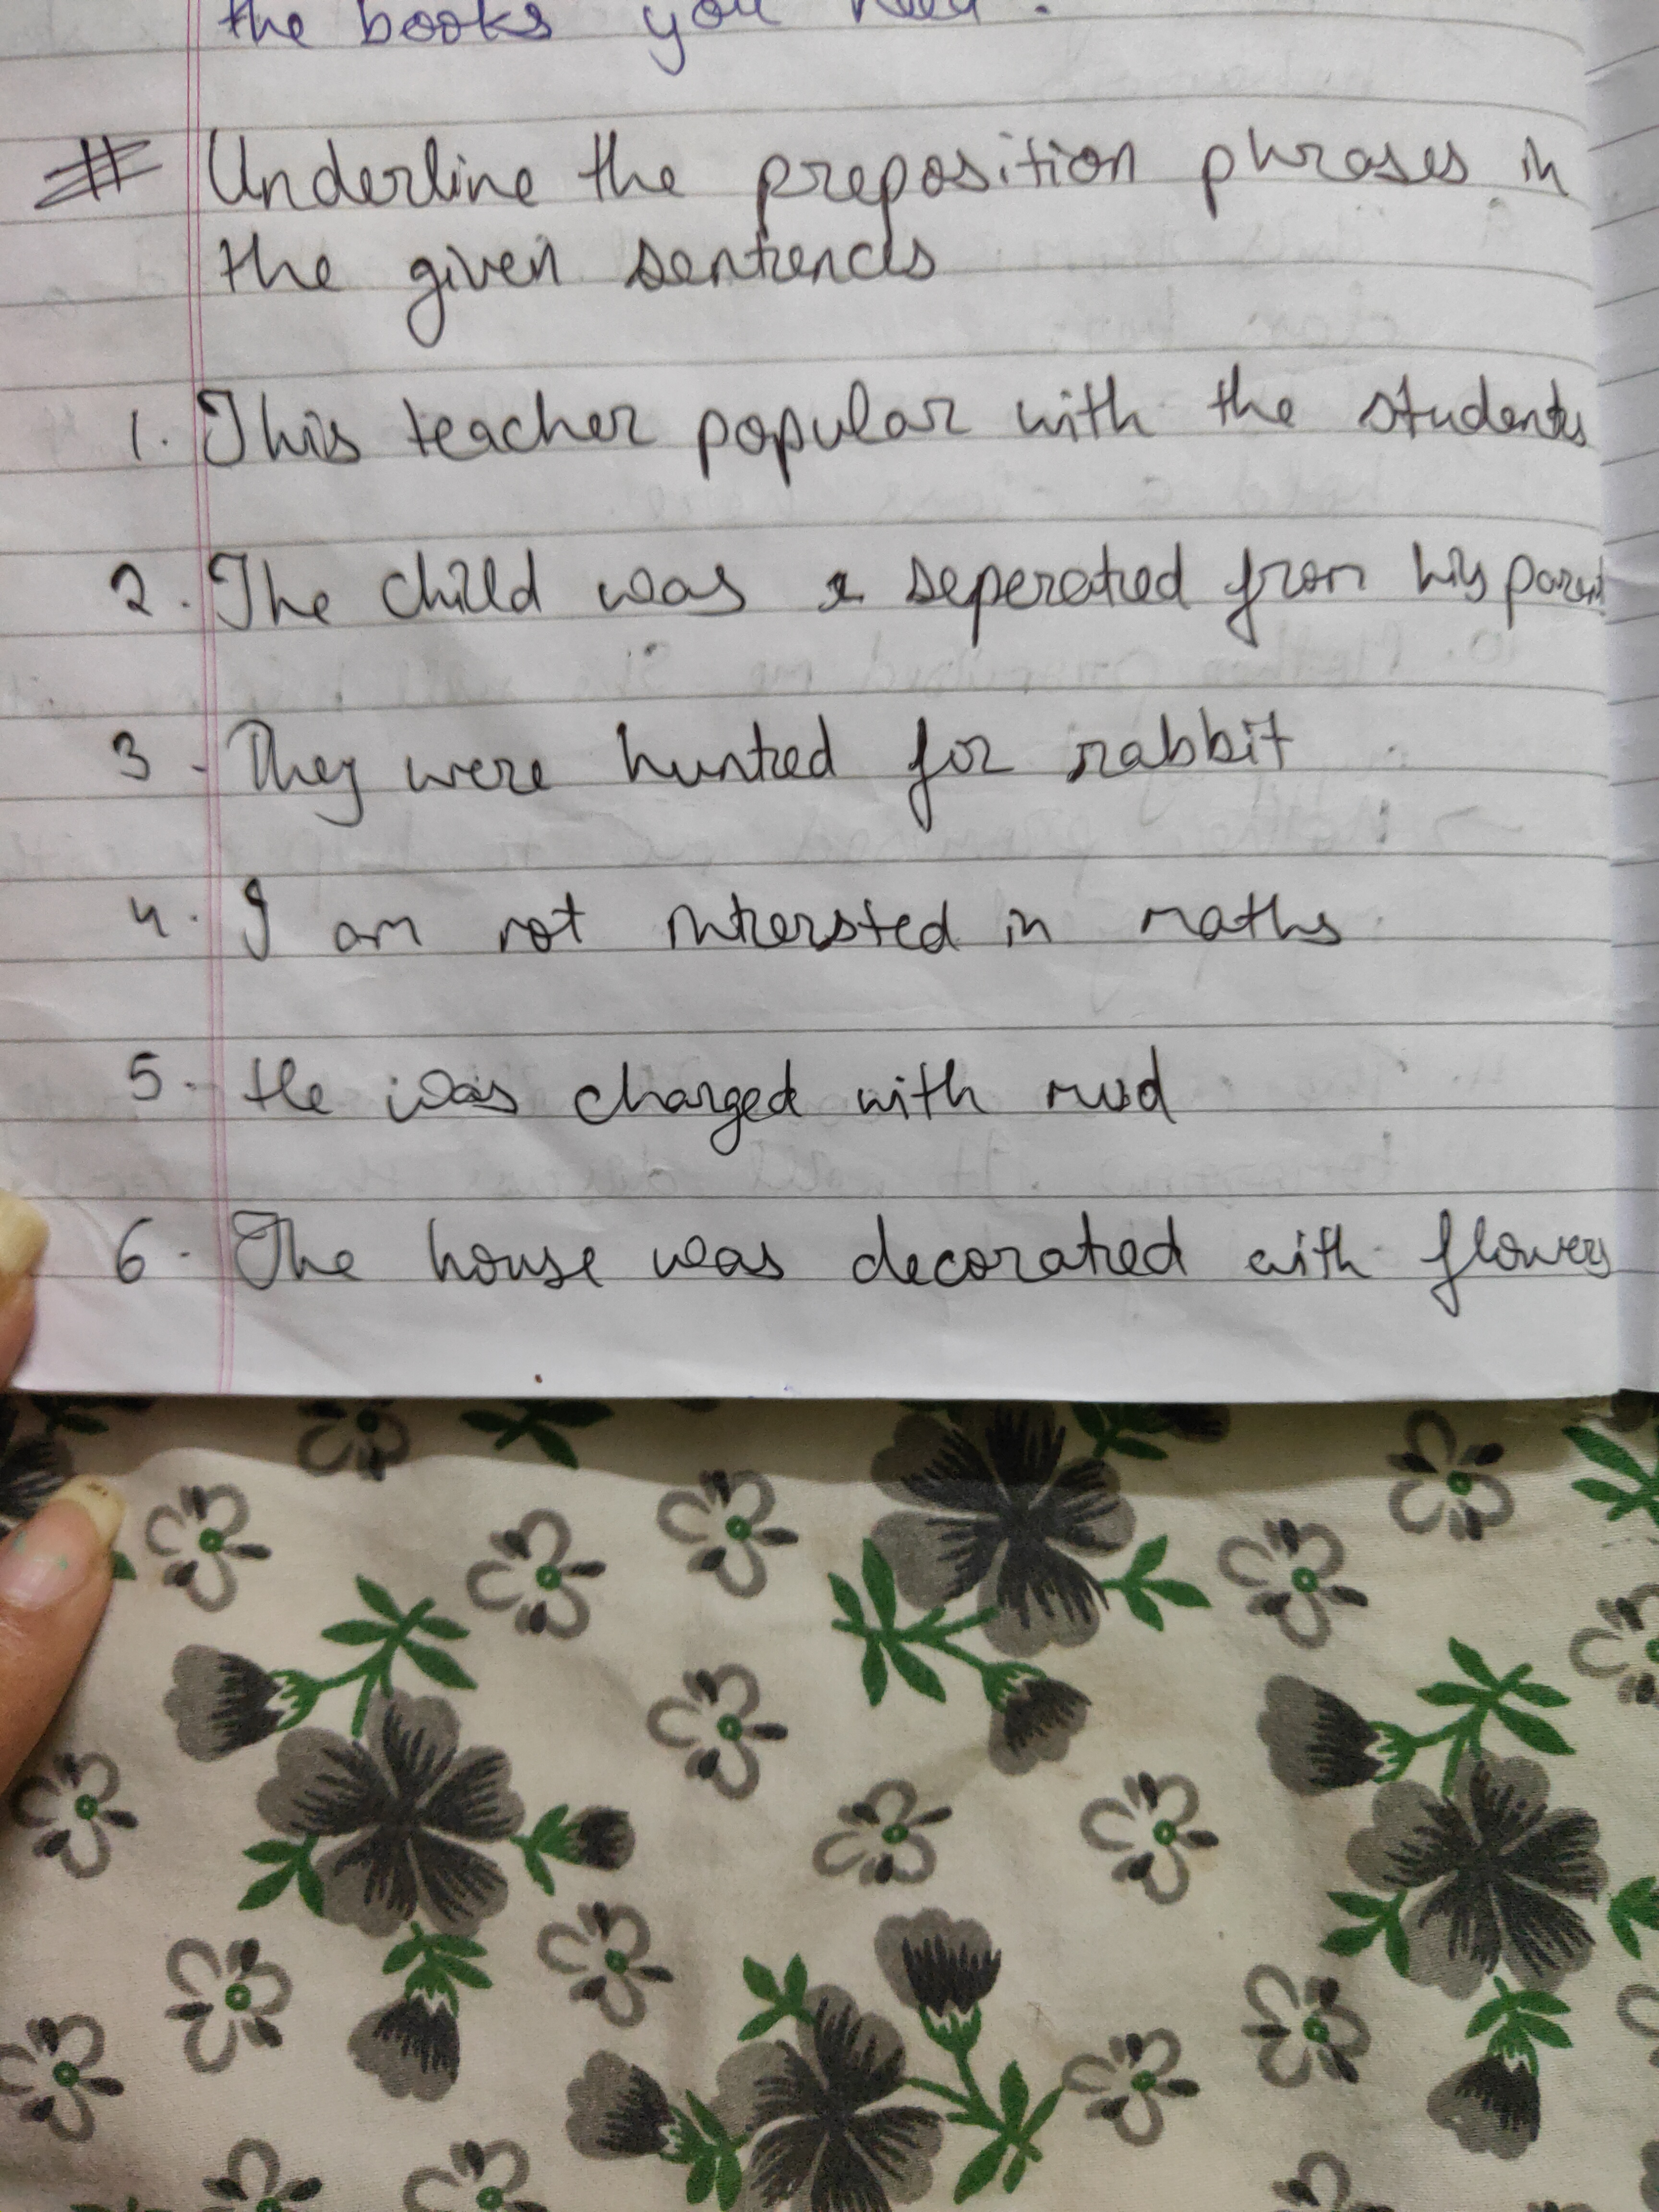 the books you need.
# Underline the preposition phrases in
the given sentences
1. This teacher popular with the students
2. The child was seperated from his parent
3. They were hunted for rabbit
4. I am not intersted in maths
5. He was charged with mud
6. The house was decorated with flowers